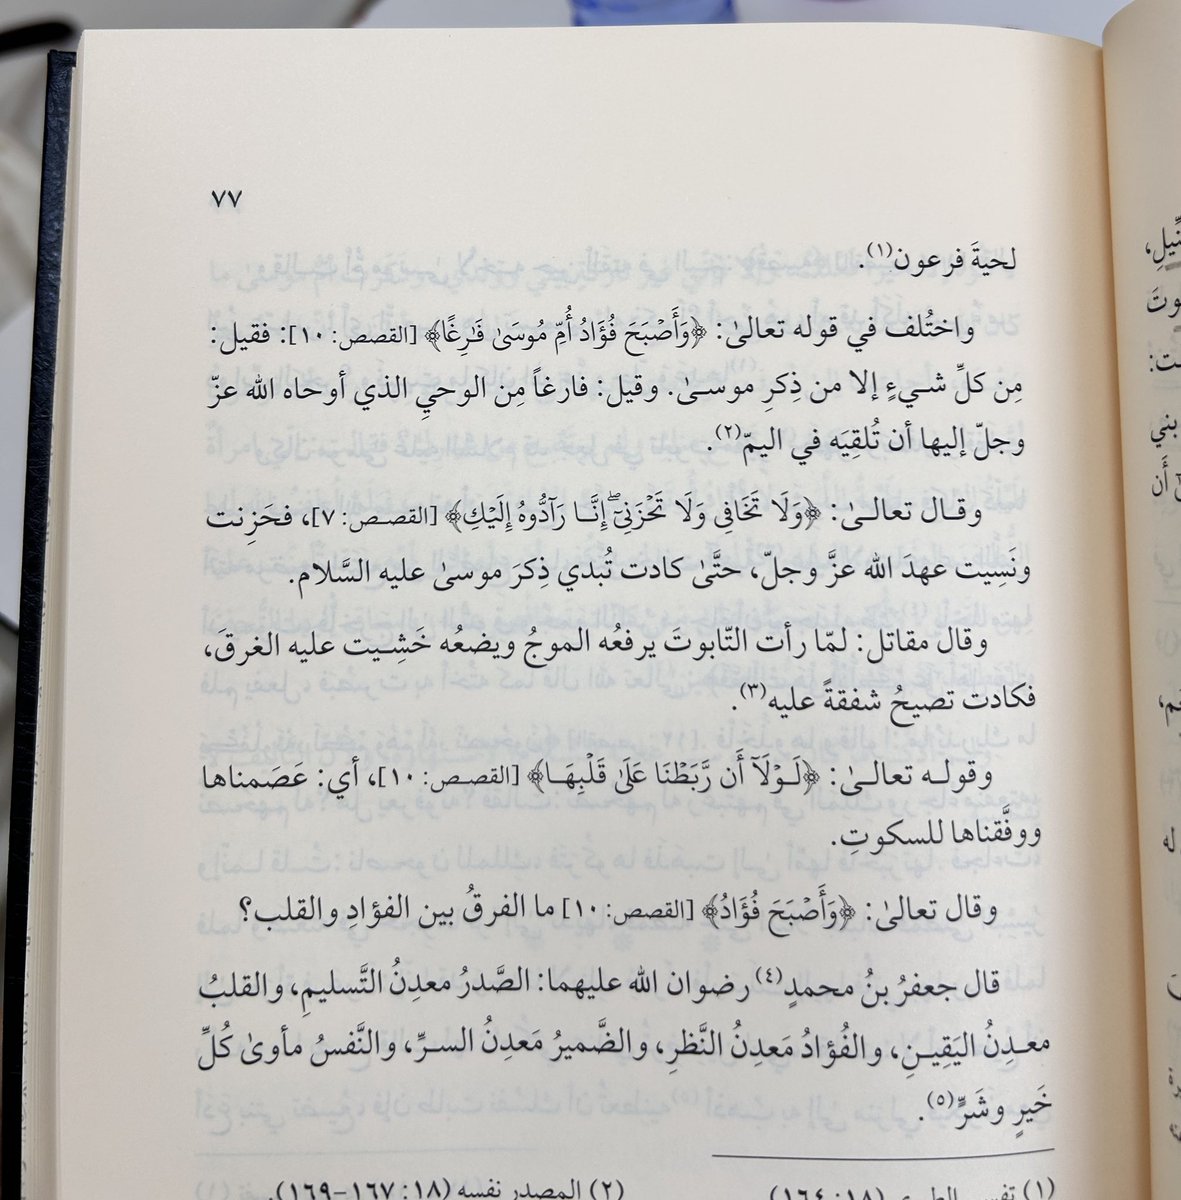 ٧٧
لحيةَ فرعون(١).
واختُلف في قوله تعالىٰ: ﴿وَأَصْبَحَ فُؤَادُ أُمِّ مُوسَىٰ فَٰرِغًا﴾ [القصص: ١٠]: فقيل:
مِن كلِّ شـيءٍ إلا من ذِكرِ موسـىٰ. وقيل: فارغاً مِن الوحيِ الذي أوحاه الله عزّ
وجلّ إليها أن تُلقِيَه في اليمّ(٢).
وقـال تعالـىٰ: ﴿وَلَا تَخَافِى وَلَا تَحْزَنِىٓ ۖ إِنَّـا رَآدُّوهُ إِلَيْكِ﴾ [القصـص: ٧]، فحَزِنت
ونَسِيت عهدَ الله عزَّ وجلّ، حتَّىٰ كادت تُبدي ذِكرَ موسىٰ عليه السَّلام.
وقال مقاتل: لمّا رأت التّابوتَ يرفعُه الموجُ ويضعُه خَشِـيت عليه الغرقَ،
فكادت تصيحُ شفقةً عليه(٣).
وقولـه تعالـىٰ: ﴿لَـوْلَآ أَن رَّبَطْنَا عَلَىٰ قَلْبِهَـا﴾ [القصـص: ١٠]، أي: عَصَمناها
ووفَّقناها للسكوتِ.
وقال تعالىٰ: ﴿وَأَصْبَحَ فُؤَادُ﴾ [القصص: ١٠] ما الفرقُ بين الفؤادِ والقلب؟
قال جعفرُ بنُ محمدٍ(٤) رضوان الله عليهما: الصَّدرُ معدِنُ التَّسليمِ، والقلبُ
معـدِنُ اليَقِيـنِ، والفُؤادُ مَعدِنُ النَّظرِ، والضَّميرُ مَعدِنُ السـرِّ، والنَّفسُ مأوىٰ كُلِّ
خَيرٍ وشَرٍّ(٥).
(١) تفسير الطبري (١٨: ١٦٤). (٢) المصدر نفسه (١٨: ١٦٧-١٦٩).